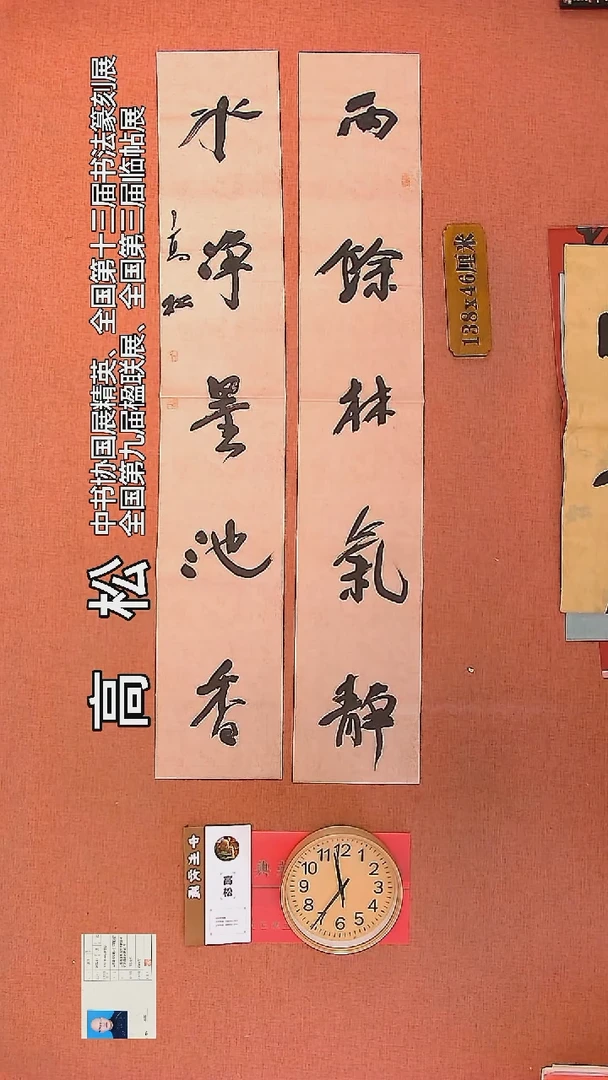 雨餘林氣靜
水淨墨池香
高松
138x46厘米
中书协国展精英、全国第十三届书法篆刻展
全国第九届楹联展、全国第三届临帖展
高 松
中州收藏
高松
12
1
2
3
4
5
6
7
8
9
10
11